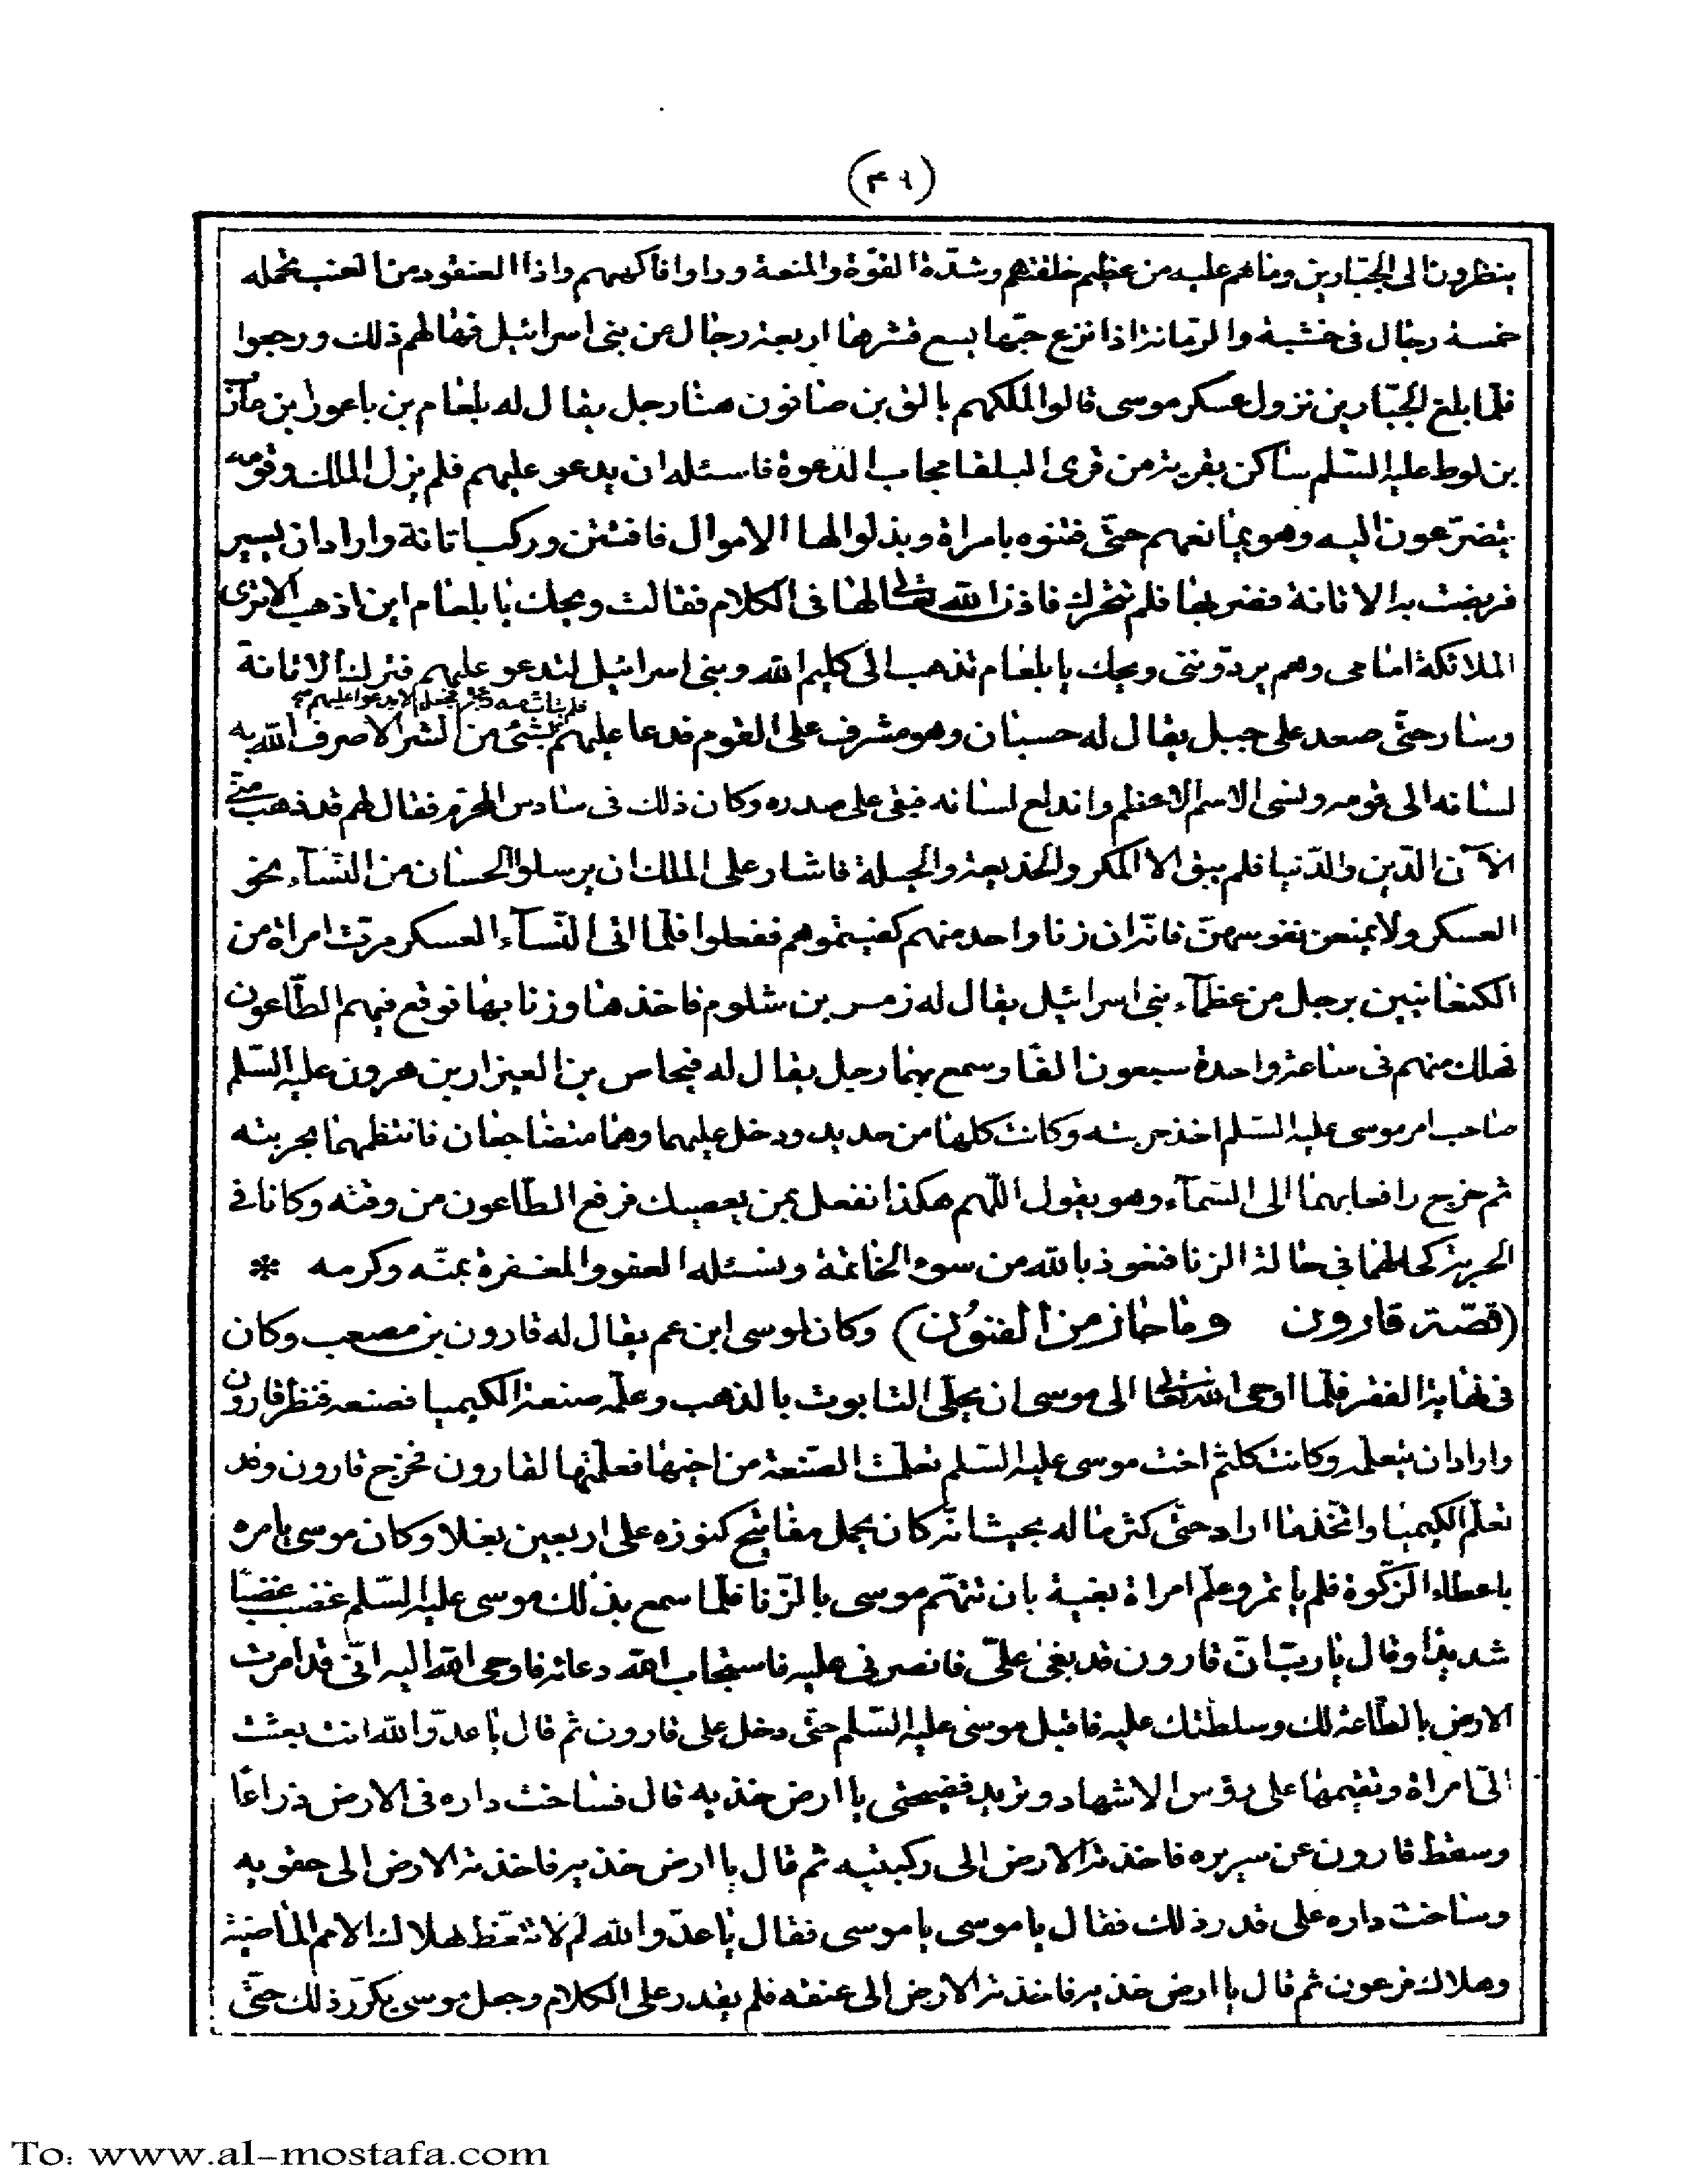 (٤٩)
ينظرون الى الجبّارين وما هم عليه من عظيم خلقتهم وشدّة القوّة والمنعة وراوا فاكهتهم واذا العنقود من العنب يحمله
خمسة رجال فى خشبة والرّمانة اذا نزع حبّها يسع قشرها اربعة رجال من بنى اسرائيل فهالهم ذلك ورجعوا
فلمّا بلغ الجبّارين نزول عسكر موسى قالوا لملكهم بالق بن صانون هنا رجل يقال له بلعام بن باعورا بن مآن
بن لوط عليه السّلم ساكن بقرية من قرى البلقا مجاب الدّعوة فاسئله ان يدعو عليهم فلم يزل الملك وقومه
يتضرّعون اليه وهو يمانعهم حتّى فتنوه بامراة وبذلوا لها الاموال فافتتن وركب اتانة واراد ان يسير
فربضت به الاتانة فضربها فلم تتحرك فاذن الله تعالى لها فى الكلام فقالت ويحك يا بلعام اين اذهب الا ترى
الملائكة امامى وهم يردّوننى ويحك يا بلعام تذهب الى كليم الله وبنى اسرائيل لتدعو عليهم فترك الاتانة
وسار حتّى صعد على جبل يقال له حسبان وهو مشرف على القوم فدعا عليهم فجعل لا يدعو عليهم بشئ من الشر الا صرف الله به
لسانه الى قومه ونسى الاسم الاعظم واندلع لسانه فبقى على صدره وكان ذلك فى سادس المحرّم فقال لهم قد ذهب منّى
الآن الدّين والدّنيا فلم يبق الا المكر والخديعة والحيلة فاشار على الملك ان يرسلوا الحسان من النّسآء نحو
العسكر ولا يمنعن نفوسهنّ فانّه ان زنا واحد منهم كفيتموهم ففعلوا فلمّا اتى النّسآء العسكر مرّت امراة من
الكنعانيين برجل من عظمآء بنى اسرائيل يقال له زمر بن شلوم فاخذها وزنا بها فوقع فيهم الطّاعون
فهلك منهم فى ساعة واحدة سبعون الفا وسمع بهما رجل يقال له فيحاص بن العيزار بن هرون عليه السّلم
صاحب امر موسى عليه السّلم اخذ حربته وكانت كلها من حديد ودخل عليهما وهما متضاجعان فانتظمهما بحربته
ثم خرج رافعا بهما الى السّمآء وهو يقول اللّهم هكذا نفعل بمن يعصيك فرفع الطّاعون من وقته وكانا فى
الحربة كحالهما فى حالة الزنا فنعوذ بالله من سوء الخاتمة ونسئله العفو والمغفرة بمنّه وكرمه *
(قصّة قارون وما حاز من الفنون) وكان لموسى ابن عم يقال له قارون بن مصعب وكان
فى نهاية الفقر فلمّا اوحى الله تعالى الى موسى ان يحلّى التابوت بالذهب وعلّمه صنعة الكيميا فصنعه فنظر قارون
واراد ان يتعلّمه وكانت كلثم اخت موسى عليه السّلم تعلّمت الصّنعة من اخيها فعلّمتها لقارون فخرج قارون وقد
تعلّم الكيميا واتّخذ ما اراد حتّى كثر ماله بحيث انّه كان يحمل مفاتيح كنوزه على اربعين بغلا وكان موسى يامره
باعطاء الزّكوة فلم ياتمر وعلّم امراة بغية بان تتهّم موسى بالزّنا فلمّا سمع بذلك موسى عليه السّلم غضب غضبًا
شديدا وقال يا ربّ انّ قارون قد بغى علىّ فانصرنى عليه فاستجاب الله دعائه فاوحى الله اليه انّى قد امرت
الارض بالطّاعة لك وسلطتك عليه فاقبل موسى عليه السّلم حتّى دخل على قارون ثم قال يا عدوّ الله انت بعثت
الىّ امراة وتقيمها على رؤس الاشهاد وتريد فضيحتى يا ارض خذيه قال فساخت داره فى الارض ذراعًا
وسقط قارون عن سريره فاخذته الارض الى ركبتيه ثم قال يا ارض خذيه فاخذته الارض الى حقويه
وساخت داره على قدر ذلك فقال يا موسى يا موسى فقال يا عدوّ الله لم لا تتعّظ لهلاك الامم الماضية
وهلاك فرعون ثم قال يا ارض خذيه فاخذته الارض الى عنقه فلم يقدر على الكلام وجعل موسى يكرّر ذلك حتّى
To: www.al-mostafa.com